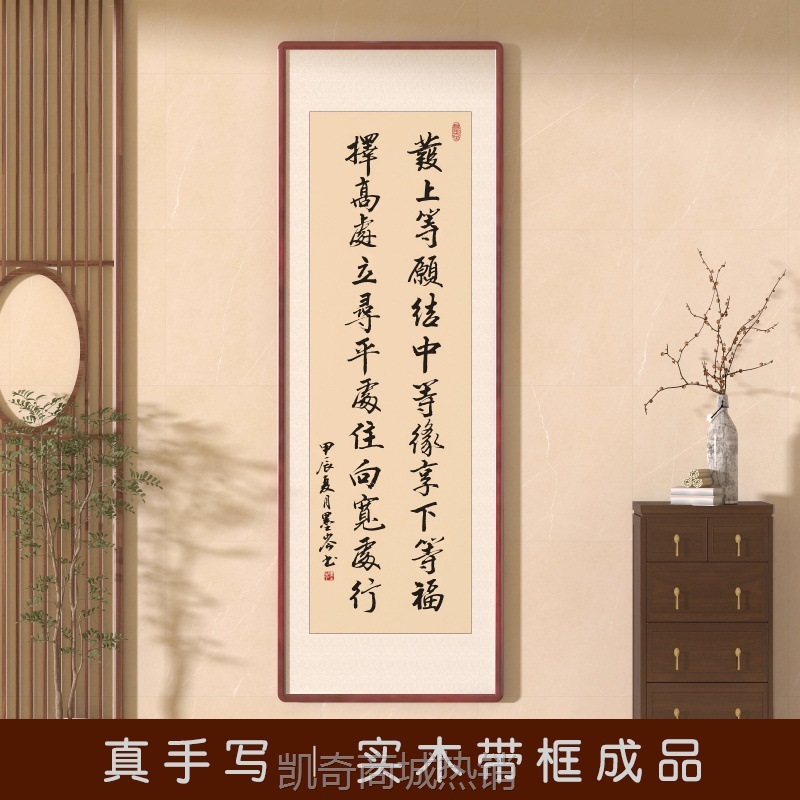 發上等願結中等緣享下等福
擇髙處立尋平處住向寬處行
甲辰夏月墨 书
真手写 | 实木带框成品
凯奇商城热销